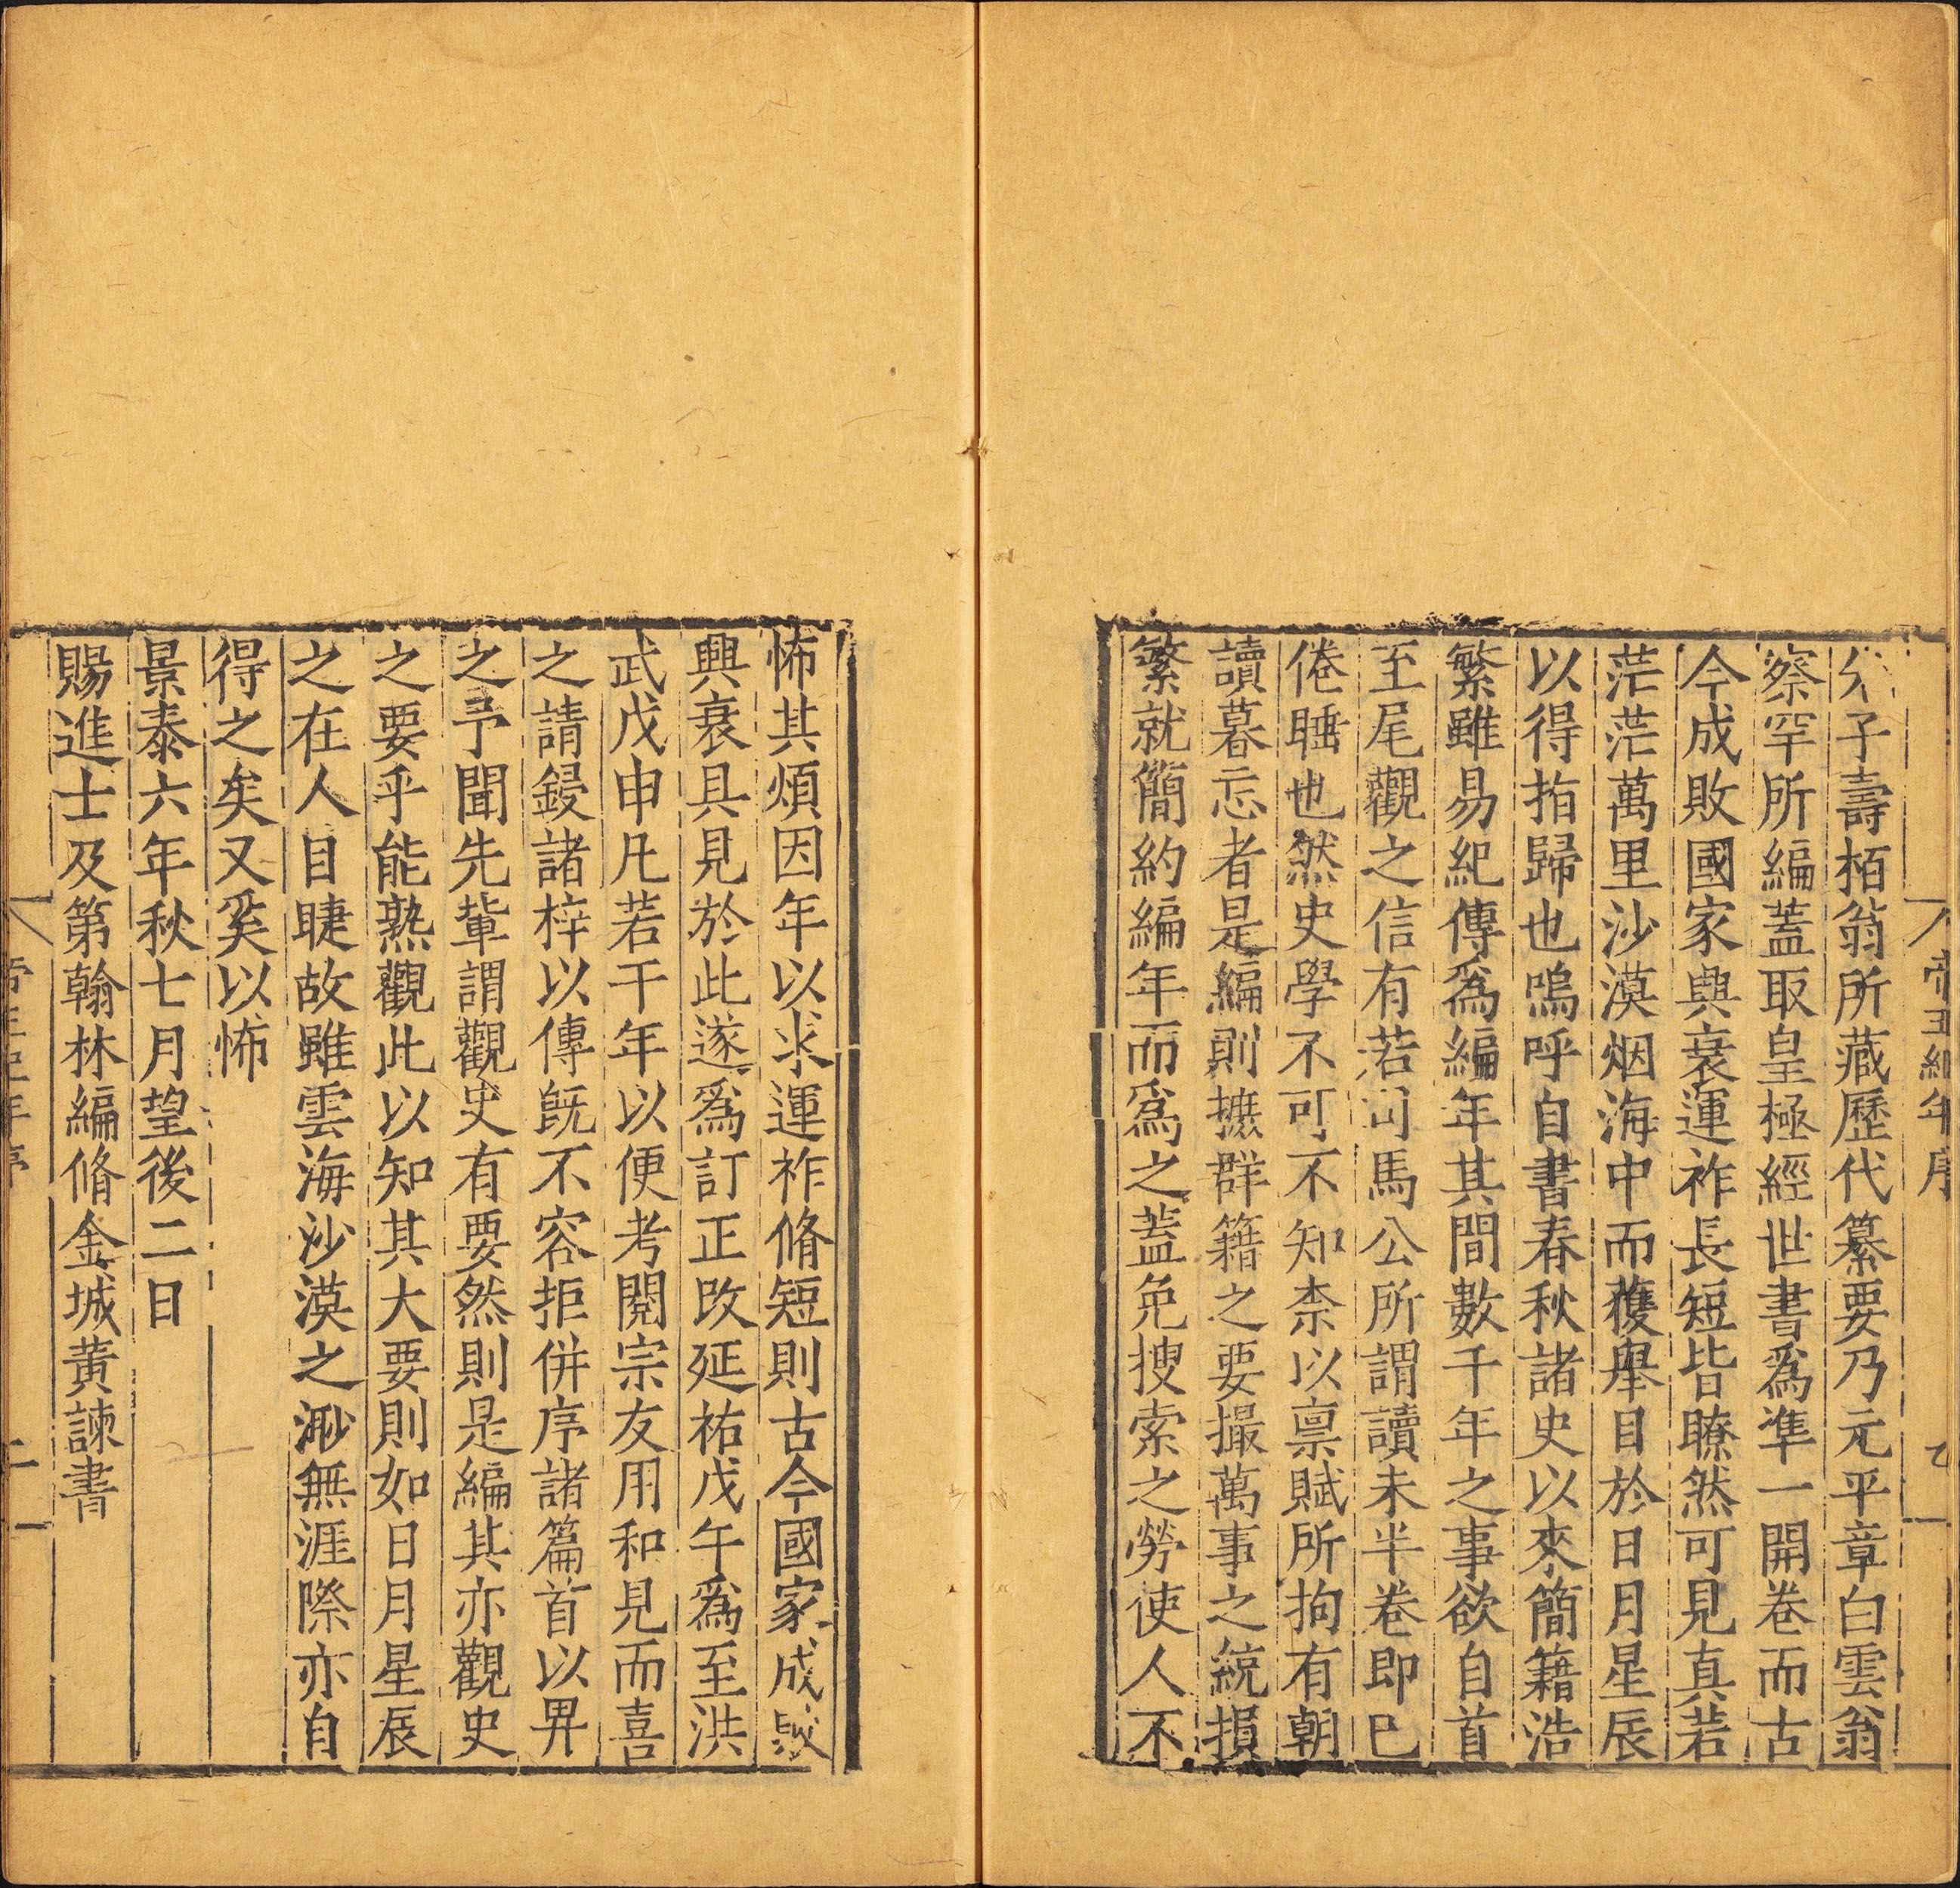 帝王紀年序
乙
公子壽栢翁所藏歷代纂要乃元平章白雲翁
察罕所編蓋取皇極經世書爲準一開卷而古
今成敗國家興衰運祚長短皆瞭然可見真若
茫茫萬里沙漠烟海中而獲舉目於日月星辰
以得指歸也嗚呼自書春秋諸史以來簡籍浩
繁雖易紀傳爲編年其間數千年之事欲自首
至尾觀之信有若司馬公所謂讀未半卷即已
倦睡也然史學不可不知柰以禀賦所拘有朝
讀暮忘者是編則摭群籍之要撮萬事之統損
繁就簡約編年而爲之蓋免搜索之勞使人不
怖其煩因年以求運祚脩短則古今國家成敗
興衰具見於此遂爲訂正改延祐戊午爲至洪
武戊申凡若干年以便考閱宗友用和見而喜
之請鋟諸梓以傳旣不容拒併序諸篇首以畀
之予聞先軰謂觀史有要然則是編其亦觀史
之要乎能熟觀此以知其大要則如日月星辰
之在人目睫故雖雲海沙漠之渺無涯際亦自
得之矣又奚以怖
景泰六年秋七月望後二日
賜進士及第翰林編脩金城黃諫書
帝王紀年序
二